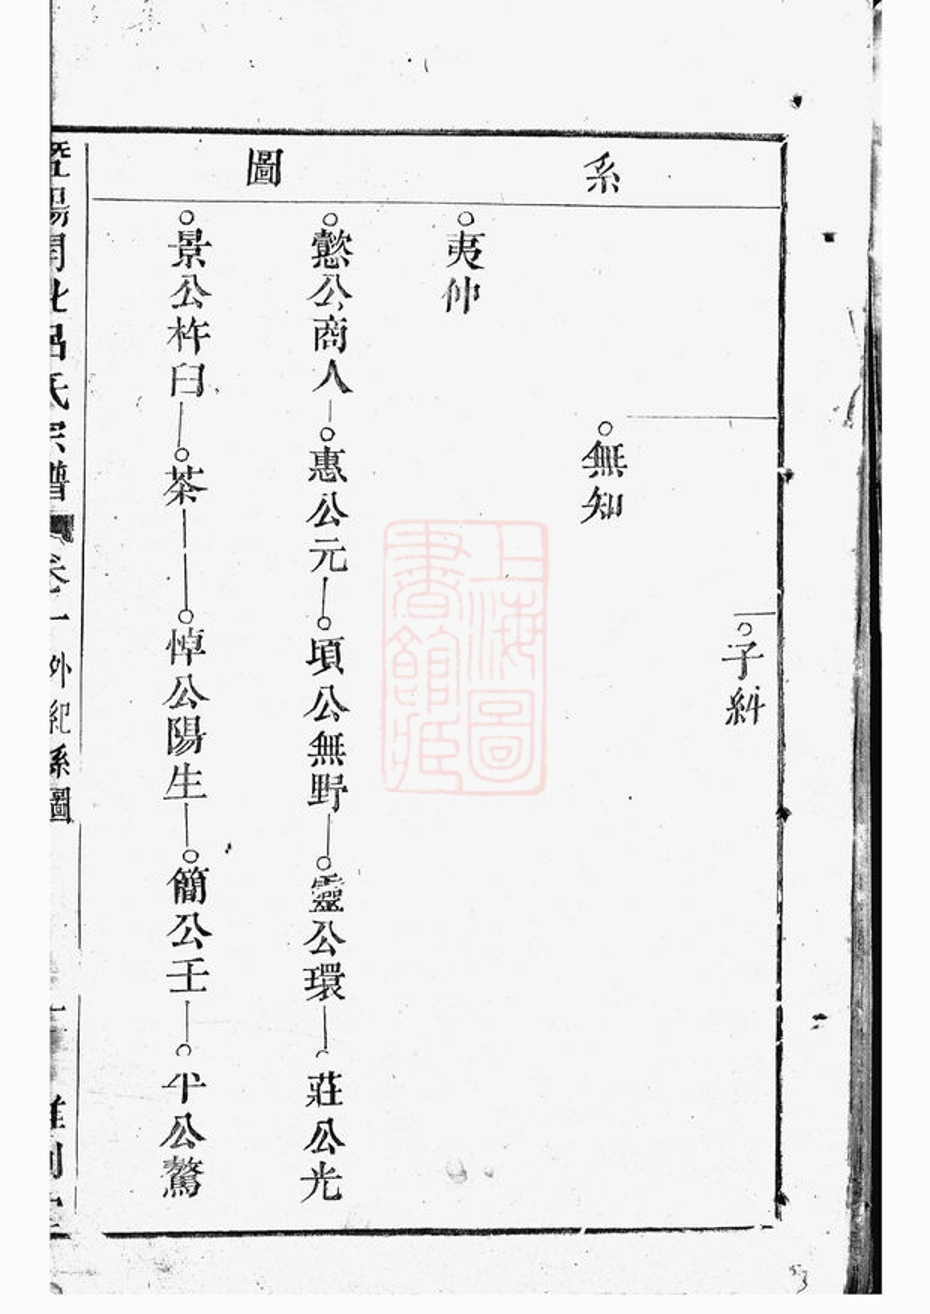 系圖
子糾
無知
夷仲
懿公商人 惠公元 頃公無野 靈公環 莊公光
景公杵臼 茶 悼公陽生 簡公壬 平公驁
暨陽開化呂氏宗譜 卷一 外紀系圖
上海圖書館藏